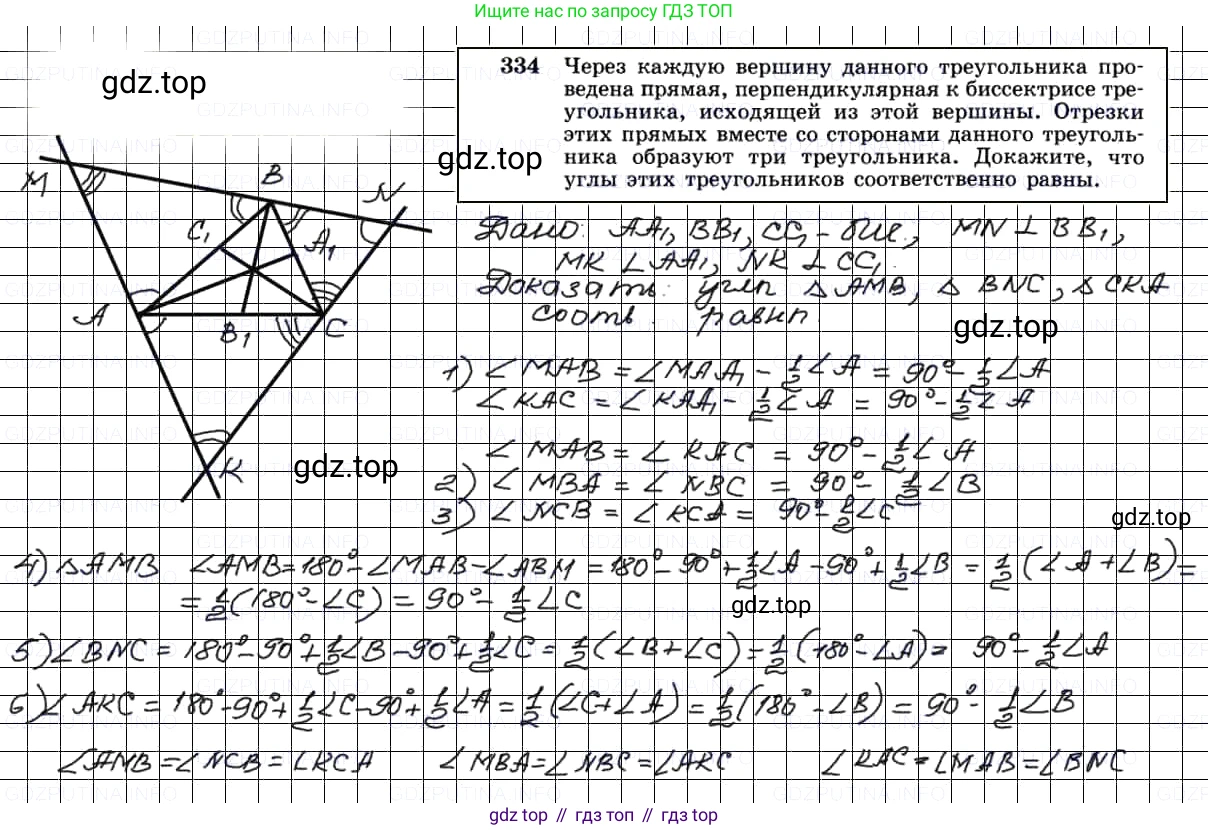 Ищите нас по запросу ГДЗ ТОП
gdz.top
334 Через каждую вершину данного треугольника про-
ведена прямая, перпендикулярная к биссектрисе тре-
угольника, исходящей из этой вершины. Отрезки
этих прямых вместе со сторонами данного треуголь-
ника образуют три треугольника. Докажите, что
углы этих треугольников соответственно равны.
gdz.top
M B N
C₁ A₁
A B₁ C
K
Дано: AA₁, BB₁, CC₁ – бис., MN ⊥ BB₁,
MK ⊥ AA₁, NK ⊥ CC₁.
Доказать: углы △AMB, △BNC, △CKA
соотв. равны.
gdz.top
1) ∠MAB = ∠MAA₁ – ½∠A = 90° – ½∠A
∠KAC = ∠KAA₁ – ½∠A = 90° – ½∠A
∠MAB = ∠KAC = 90° – ½∠A
gdz.top
2) ∠MBA = ∠NBC = 90° – ½∠B
3) ∠NCB = ∠KCA = 90° – ½∠C
gdz.top
4) △AMB ∠AMB = 180° – ∠MAB – ∠ABM = 180° – 90° + ½∠A – 90° + ½∠B = ½(∠A + ∠B) =
= ½(180° – ∠C) = 90° – ½∠C
gdz.top
5) ∠BNC = 180° – 90° + ½∠B – 90° + ½∠C = ½(∠B + ∠C) = ½(180° – ∠A) = 90° – ½∠A
6) ∠AKC = 180° – 90° + ½∠C – 90° + ½∠A = ½(∠C + ∠A) = ½(180° – ∠B) = 90° – ½∠B
∠AMB = ∠NCB = ∠KCA ∠MBA = ∠NBC = ∠AKC ∠KAC = ∠MAB = ∠BNC
gdz.top // гдз топ // gdz top